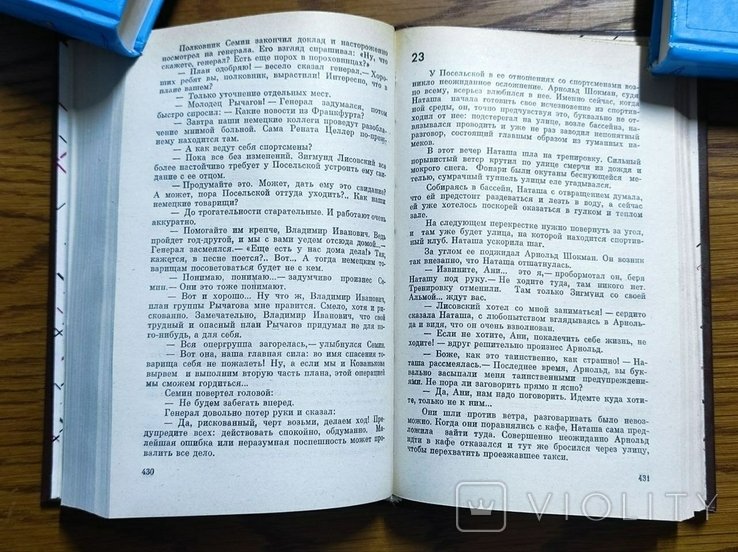 Полковник Семин закончил доклад и настороженно
посмотрел на генерала. Его взгляд спрашивал: «Ну, что
скажете, генерал? Есть еще порох в пороховницах?»
— План одобряю! — весело сказал генерал.— Хоро-
ших ребят вы, полковник, вырастили! Интересно, что в
плане вашем?
— Только уточнение отдельных мест.
— Молодец Рычагов! — Генерал задумался, потом
быстро спросил: — Какие новости из Франкфурта?
— Завтра наши немецкие коллеги проведут разобла-
чение мнимой больной. Сама Рената Целлер по-преж-
нему находится там.
— А как ведут себя спортсмены?
— Пока все без изменений. Зигмунд Лисовский все
более настойчиво требует у Посельской устроить ему сви-
дание с ее отцом.
— Продумайте это. Может, дать ему это свидание?
А может, пора Посельской оттуда уходить?.. Как наши
немецкие товарищи?
— До трогательности старательные. И работают очень
аккуратно.
— Помогайте им крепче, Владимир Иванович. Ведь
пройдет год-другой, и мы с вами уедем отсюда домой.—
Генерал засмеялся.— «Еще есть у нас дома дела!» Так,
кажется, в песне поется?.. Вот... А тогда немецким то-
варищам посоветоваться будет не с кем.
— Понимаю, понимаю,— задумчиво произнес Се-
мин.— Они это тоже понимают.
— Вот и хорошо!.. Ну что ж, Владимир Иванович,
план группы Рычагова мне нравится. Смело, хотя и ри-
скованно. Замечательно, Владимир Иванович, что свой
трудный и опасный план Рычагов придумал не для ко-
го-нибудь, а для себя.
— Вся опергруппа загорелась,— улыбнулся Семин.
— Вот она, наша главная сила: во имя спасения то-
варища себя не пожалеть! Ну, а если мы и Кованькова
вернем и выполним вторую часть плана, этой операцией
мы сможем гордиться...
Семин повертел головой:
— Не будем забегать вперед.
Генерал довольно потер руки и сказал:
— Да, рискованный, черт возьми, делаем ход! Пре-
дупредите всех: действовать спокойно, обдуманно. Ма-
лейшая ошибка или неразумная поспешность может про-
валить все дело.
430
23
У Посельской в ее отношениях со спортсменами воз-
никло неожиданное осложнение. Арнольд Шокман, судя
по всему, всерьез влюбился в нее. Именно сейчас, когда
Наташа начала готовить свое исчезновение из спорт-
ивной среды, он, точно предчувствуя это, буквально не от-
ходил от нее: подстерегал на улице, возле бассейна, на-
вязывался проводить и уже не раз заводил непонятный
разговор, состоящий главным образом из туманных на-
меков.
В этот вечер Наташа шла на тренировку. Сильный
порывистый ветер крутил по улице смерчи из дождя и
мокрого снега. Фонари были окутаны беснующейся ме-
телью, сумрачный туннель улицы еле угадывался.
Собираясь в бассейн, Наташа с отвращением думала,
что ей предстоит раздеваться и лезть в воду, а сейчас
ей уже хотелось поскорей оказаться в гулком и теплом
зале.
На следующем перекрестке нужно повернуть за угол,
и там уже будет улица, на которой находится спортив-
ный клуб. Наташа ускорила шаг.
За углом ее поджидал Арнольд Шокман. Он возник
так внезапно, что Наташа отшатнулась.
— Извините, Ани... это я,— пробормотал он, беря
Наташу под руку.— Не ходите туда, там никого нет.
Тренировку отменили. Там только Зигмунд со своей
Альмой... ждут вас.
— Лисовский хотел со мной заниматься! — сердито
сказала Наташа, с любопытством вглядываясь в Арноль-
да и видя, что он очень взволнован.
— Если не хотите, Ани, покалечить себе жизнь, не
ходите! — вдруг решительно произнес Арнольд.
— Боже, как это таинственно, как страшно! — На-
таша рассмеялась.— Последнее время, Арнольд, вы бук-
вально засыпали меня таинственными предупреждени-
ями. Не пора ли заговорить прямо и ясно?
— Да, Ани, нам надо поговорить. Идемте куда хоти-
те, только не к ним...
Они шли против ветра, разговаривать было невоз-
можно. Когда они поравнялись с кафе, Наташа сама пред-
ложила зайти туда. Совершенно неожиданно Арнольд
идти в кафе отказался и тут же бросился через улицу,
чтобы перехватить проезжавшее такси.
431
VIOLITY